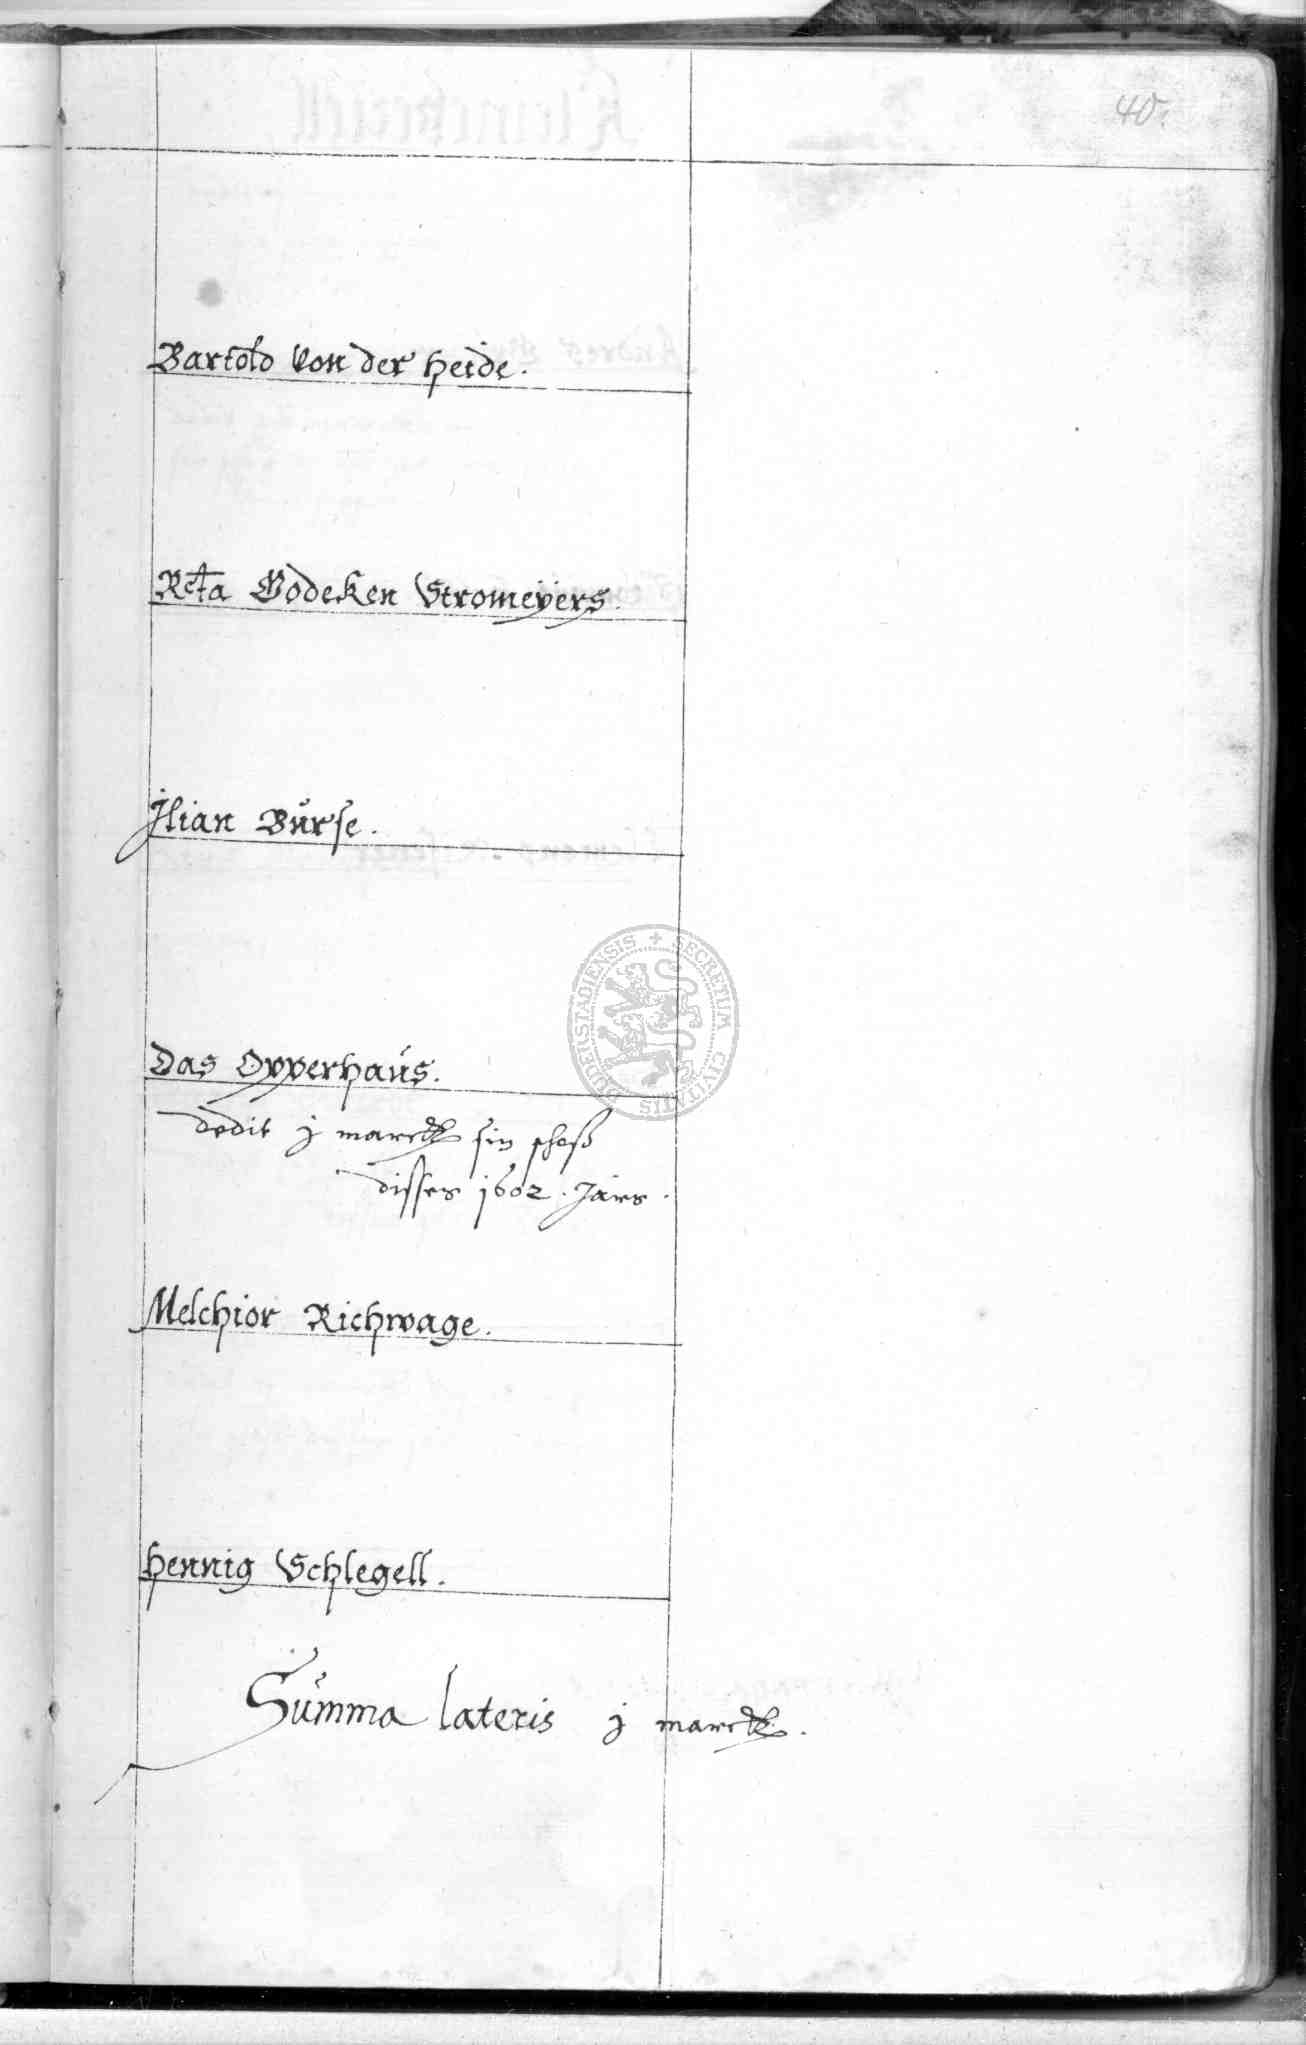 40.
Bartold Von der Heide.
Rcta Gödeken Stromeÿers.
Jlian Burse.
Das Opperhaus.
dedit j marck sin schoß
disses 1602. Jars.
Melchior Richwage.
Hennig Schlegell.
Summa lateris j marck.
SECRETUM CIVITATIS DUDERSTADIENSIS